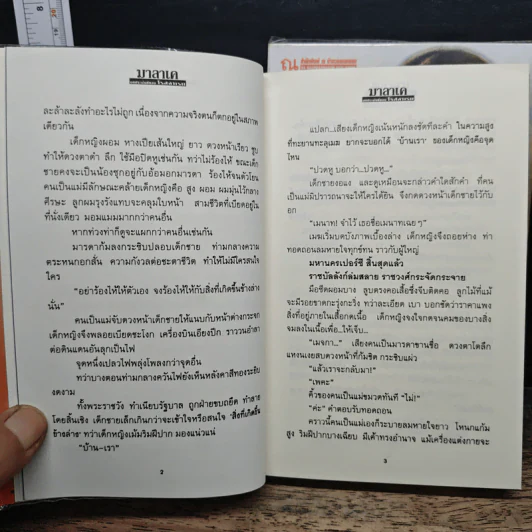 มาลาเค
ละล้าละลังทำอะไรไม่ถูก เนื่องจากความจริงตนก็ตกอยู่ในสภาพ
เดียวกัน
เด็กหญิงผอม หางเปียเส้นใหญ่ ยาว ดวงหน้าเรียว ซูบ
ทำให้ดวงตาดำ ลึก ใช้มือปิดหูเช่นกัน ทว่าไม่ร้องไห้ ขณะเด็ก
ชายคงจะเป็นน้องซุกอยู่กับอ้อมอกมารดา ร้องไห้จนตัวโยน
คนเป็นแม่มีลักษณะคล้ายเด็กหญิงคือ สูง ผอม ผมมุ่นไว้กลาง
ศีรษะ ลูกผมรุงรังแทบจะคลุมใบหน้า สามชีวิตที่เบียดอยู่ใน
ที่นั่งเดียว มอมแมมมากกว่าคนอื่น
หากท่วงท่าก็ดูจะแผกกว่าคนอื่นเช่นกัน
มารดาก้มลงกระซิบปลอบเด็กชาย ท่ามกลางความ
ตระหนกอกสั่น ความกังวลต่อชะตาชีวิต ทำให้ไม่มีใครสนใจ
ใคร
"อย่าร้องไห้ให้ตัวเอง จงร้องไห้ให้กับสิ่งที่เกิดขึ้นข้างล่าง
นั่น"
คนเป็นแม่จับดวงหน้าเด็กชายให้แนบกับหน้าต่างกระจก
เด็กหญิงจึงพลอยเบียดชะโงก เครื่องบินเอียงปีก ราววนอำลา
ต่อดินแดนอันลุกเป็นไฟ
จุดหนึ่งเปลวไฟพลุ่งโพลงกว่าจุดอื่น
ทว่าบางตอนท่ามกลางควันไฟยังเห็นหลังคาสีทองระยับ
งดงาม
ทั้งพระราชวัง ทำเนียบรัฐบาล ถูกฝ่ายขบถยึด ทำลาย
โดยสิ้นเชิง เด็กชายเล็กเกินกว่าจะเข้าใจหรือสนใจ 'สิ่งที่เกิดขึ้น
ข้างล่าง' ทว่าเด็กหญิงเม้มริมฝีปาก มองแน่วแน่
"บ้าน-เรา"
2
มาลาเค
แปลก...เสียงเด็กหญิงเน้นหนักลงชัดทีละคำ ในความสูง
ที่ทะยานทะลุเมฆ ยากจะบอกได้ 'บ้านเรา' ของเด็กหญิงคือจุด
ไหน
"ปวดหู บอกว่า...ปวดหู..."
เด็กชายงอแง และดูเหมือนจะกล่าวคำใดสักคำ ที่คน
เป็นแม่มิปรารถนาจะให้ใครได้ยิน จึงกดดวงหน้าเด็กชายไว้กับ
อก
"เมนาท! จำไว้ เธอชื่อเมนาทเฉย ๆ"
เมฆเริ่มบดบังภาพเบื้องล่าง เด็กหญิงจึงถอยห่าง ท่า
ทอดถอนลมหายใจทุกข์ทน ราวกับผู้ใหญ่
มหานครเปอร์ซี สิ้นสุดแล้ว
ราชบัลลังก์ล่มสลาย ราชวงศ์กระจัดกระจาย
มือซีดผอมบาง ลูบตรงคอเสื้อซึ่งจีบติดคอ ลูกไม้ที่แม้
จะมีรอยขาดกะรุ่งกะริ่ง ทว่าละเอียด เบา บอกชัดว่าราคาแพง
สิ่งที่อยู่ภายในเสื้อกดเนื้อ เด็กหญิงจงใจกดจนคมของบางสิ่ง
จมลงในเนื้อเพื่อ..ให้เจ็บ...
"เมจกา..." เสียงคนเป็นมารดาขานชื่อ ดวงตาโตลึก
แหงนเงยสบดวงหน้าที่ก้มชิด กระซิบแผ่ว
"แล้วเราจะกลับมา!"
"เพคะ"
คิ้วของคนเป็นแม่ขมวดทันที "ไม่!"
"ค่ะ" คำตอบรับทอดถอน
คราวนี้คนเป็นแม่เองก็ระบายลมหายใจยาว โหนกแก้ม
สูง ริมฝีปากบางเฉียบ มีเค้าทรงอำนาจ แม้เครื่องแต่งกายจะ
3